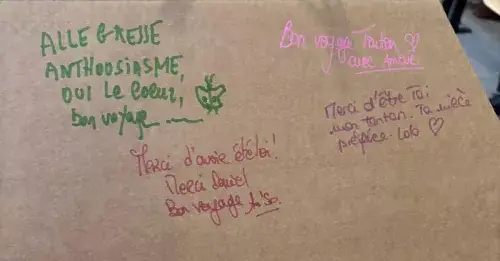 ALLEGRESSE
ANTHOUSIASME,
OUI LE COEUR,
bon voyage
Bon voyage Tonton
avec Amour
Merci d'être Toi
mon tonton. Ta nièce
préférée. Lolo
Merci d'avoir été toi!
Merci Daniel
Bon voyage